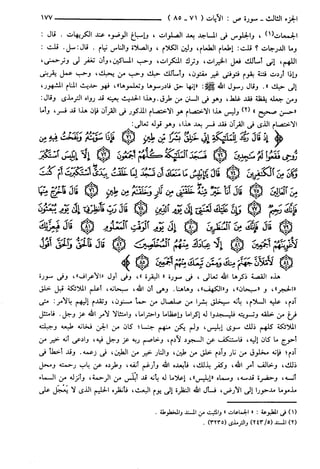 الجزء الثالث - سورة ص : الآيات (٧١ - ٨٥) ١٧٧
الجمعات(١) ، والجلوس فى المساجد بعد الصلوات ، وإسباغ الوضوء عند الكريهات . قال :
وما الدرجات ؟ قلت : إطعام الطعام، ولين الكلام ، والصلاة والناس نيام . قال : سل . قلت :
اللهم، إنى أسألك فعل الخيرات، وترك المنكرات، وحب المساكين، وأن تغفر لى وترحمنى،
وإذا أردت فتنة بقوم فتوفنى غير مفتون، وأسألك حبك وحب من يحبك، وحب عمل يقربنى
إلى حبك . وقال رسول الله ﷺ : «إنها حق فادرسوها وتعلموها»، فهو حديث المنام المشهور،
ومن جعله يقظة فقد غلط، وهو فى السنن من طرق. وهذا الحديث بعينه قد رواه الترمذى وقال:
«حسن صحيح» (٢) وليس هذا الاختصام هو الاختصام المذكور فى القرآن فإن هذا قد فسر، وأما
الاختصام الذى فى القرآن فقد فسر بعد هذا، وهو قوله تعالى:
﴿إِذْ قَالَ رَبُّكَ لِلْمَلَائِكَةِ إِنِّي خَالِقٌ بَشَرًا مِنْ طِينٍ (٧١) فَإِذَا سَوَّيْتُهُ وَنَفَخْتُ فِيهِ مِنْ
رُوحِي فَقَعُوا لَهُ سَاجِدِينَ (٧٢) فَسَجَدَ الْمَلَائِكَةُ كُلُّهُمْ أَجْمَعُونَ (٧٣) إِلَّا إِبْلِيسَ اسْتَكْبَرَ
وَكَانَ مِنَ الْكَافِرِينَ (٧٤) قَالَ يَا إِبْلِيسُ مَا مَنَعَكَ أَنْ تَسْجُدَ لِمَا خَلَقْتُ بِيَدَيَّ أَسْتَكْبَرْتَ أَمْ كُنْتَ
مِنَ الْعَالِينَ (٧٥) قَالَ أَنَا خَيْرٌ مِنْهُ خَلَقْتَنِي مِنْ نَارٍ وَخَلَقْتَهُ مِنْ طِينٍ (٧٦) قَالَ فَاخْرُجْ مِنْهَا
فَإِنَّكَ رَجِيمٌ (٧٧) وَإِنَّ عَلَيْكَ لَعْنَتِي إِلَى يَوْمِ الدِّينِ (٧٨) قَالَ رَبِّ فَأَنْظِرْنِي إِلَى يَوْمِ يُبْعَثُونَ (٧٩) قَالَ
فَإِنَّكَ مِنَ الْمُنْظَرِينَ (٨٠) إِلَى يَوْمِ الْوَقْتِ الْمَعْلُومِ (٨١) قَالَ فَبِعِزَّتِكَ
لَأُغْوِيَنَّهُمْ أَجْمَعِينَ (٨٢) إِلَّا عِبَادَكَ مِنْهُمُ الْمُخْلَصِينَ (٨٣) قَالَ فَالْحَقُّ وَالْحَقَّ أَقُولُ (٨٤)
لَأَمْلَأَنَّ جَهَنَّمَ مِنْكَ وَمِمَّنْ تَبِعَكَ مِنْهُمْ أَجْمَعِينَ (٨٥)﴾
هذه القصة ذكرها الله تعالى ، فى سورة «البقرة»، وفى أول «الأعراف»، وفى سورة
«الحجر»، و «سبحان»، و«الكهف»، وهاهنا. وهى أن الله، سبحانه، أعلم الملائكة قبل خلق
آدم، عليه السلام، بأنه سيخلق بشرا من صلصال من حمأ مسنون، وتقدم إليهم بالأمر: متى
فرغ من خلقه وتسويته فليسجدوا له إكراما وإعظاما واحتراما، وامتثالا لأمر الله عز وجل. فامتثل
الملائكة كلهم ذلك سوى إبليس، ولم يكن منهم جنسا؛ كان من الجن فخانه طبعه وجبلته
أحوج ما كان إليه، فاستنكف عن السجود لآدم، وخاصم ربه عز وجل فيه، وادعى أنه خير من
آدم؛ فإنه مخلوق من نار وآدم خلق من طين، والنار خير من الطين، فى زعمه. وقد أخطأ فى
ذلك، وخالف أمر الله، وكفر بذلك، فأبعده الله وأرغم أنفه، وطرده عن باب رحمته ومحل
أنسه، وحضرة قدسه، وسماه «إبليس»، إعلاما له بأنه قد أبلس من الرحمة، وأنزله من السماء
مذموما مدحورا إلى الأرض، فسأل الله النظرة إلى يوم البعث، فأنظره الحليم الذى لا يعجل على
(١) فى المطبوعة : «الجماعات» والمثبت من المسند والمخطوطة .
(٢) المسند (٢٤٣/٥) والترمذى (٣٢٣٥) .